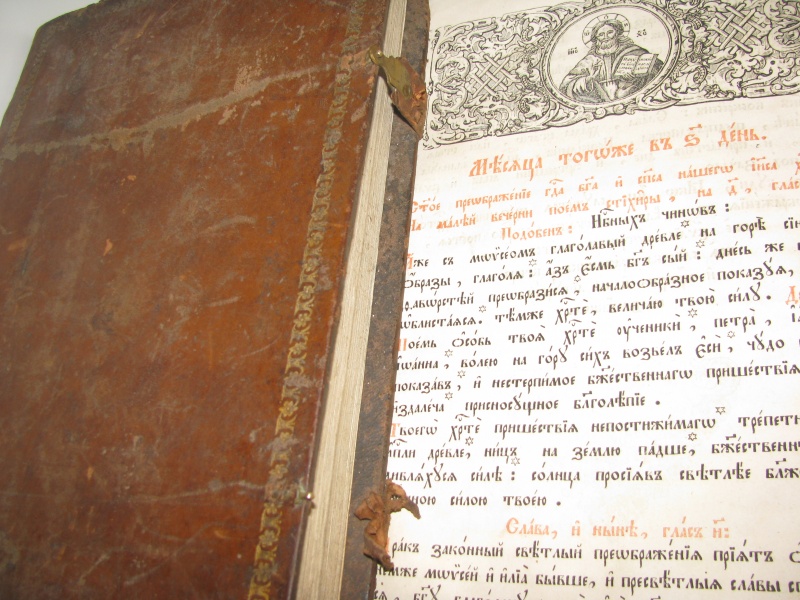 Мⷭ҇ѧца тогѡ́же въ ѕ҃ де́нь.
преѡбраже́нїе гдⷭ҇а бг҃а и҆ сп҃са на́шегѡ і҆и҃са
На ма́лѣй вече́рни пое́мъ стїхи̑ры, на д҃, гла́съ
Подо́бенъ: Нбⷭ҇ныхъ чинѡ́въ:
И́же съ мѡѷсе́омъ глаго́лавый дре́вле на горѣ̀
ѻ҆́бразы, глаго́лѧ: а҆́зъ є҆́смь бг҃ъ сы́й: дне́сь же
ѳавѡ́рстѣй преѡбрази́сѧ, началоѻбра́зное показу́ѧ,
ѡ҆блиста́ѧсѧ. тѣ́мже хрⷭ҇тѐ, велича́ю твою̀ си́лу.
Пое́мь ѻ҆со́бь твоѧ̑ хрⷭ҇тѐ ᲂу҆ченикѝ, петра̀,
і҆ѡа́нна, во́лею на го́ру си́хъ возве́лъ є҆сѝ, чу́до
показа́въ, и҆ нестерпи́мое бж҃е́ственнагѡ прише́ствїѧ
и҆здале́ча присносу́щное бл҃голѣ́пїе.
Твоегѡ̀ хрⷭ҇тѐ прише́ствїѧ непостижи́магѡ тре́петн
дре́вле, ни́цъ на зе́млю па́дше, бж҃е́ственнѣ
дивлѧ́хусѧ си́лѣ: со́лнца просїѧ́въ свѣтлѣ́е
си́лою твое́ю.
Сла́ва, и҆ ны́нѣ, гла́съ и҃:
Мра́къ зако́нный свѣ́тлый преѡбраже́нїѧ прїѧ́тъ
мѡѷсе́й и҆ и҆лїа̀ бы́вше, и҆ пресвѣ́тлыѧ сла́вы